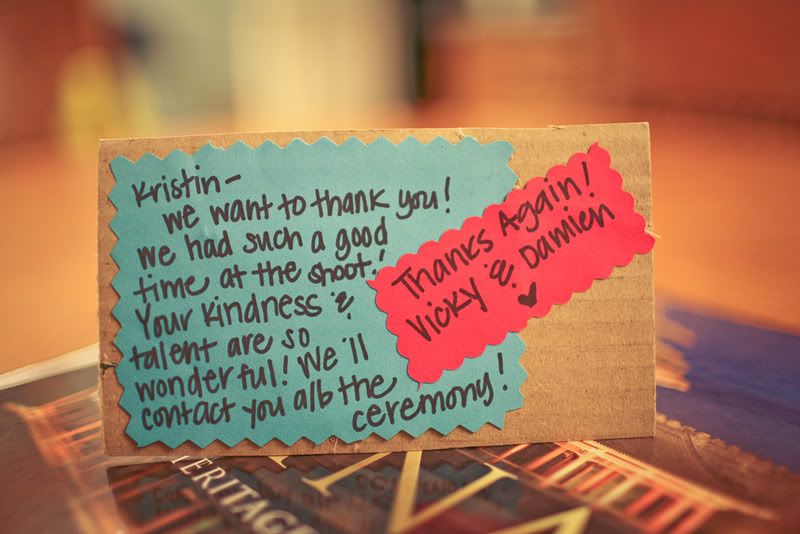 Kristin-
we want to thank you!
we had such a good
time at the shoot!
Your kindness &
talent are so
wonderful! We'll
contact you a/b the
ceremony!
Thanks Again!
Vicky & Damien
♥
HERITAGE